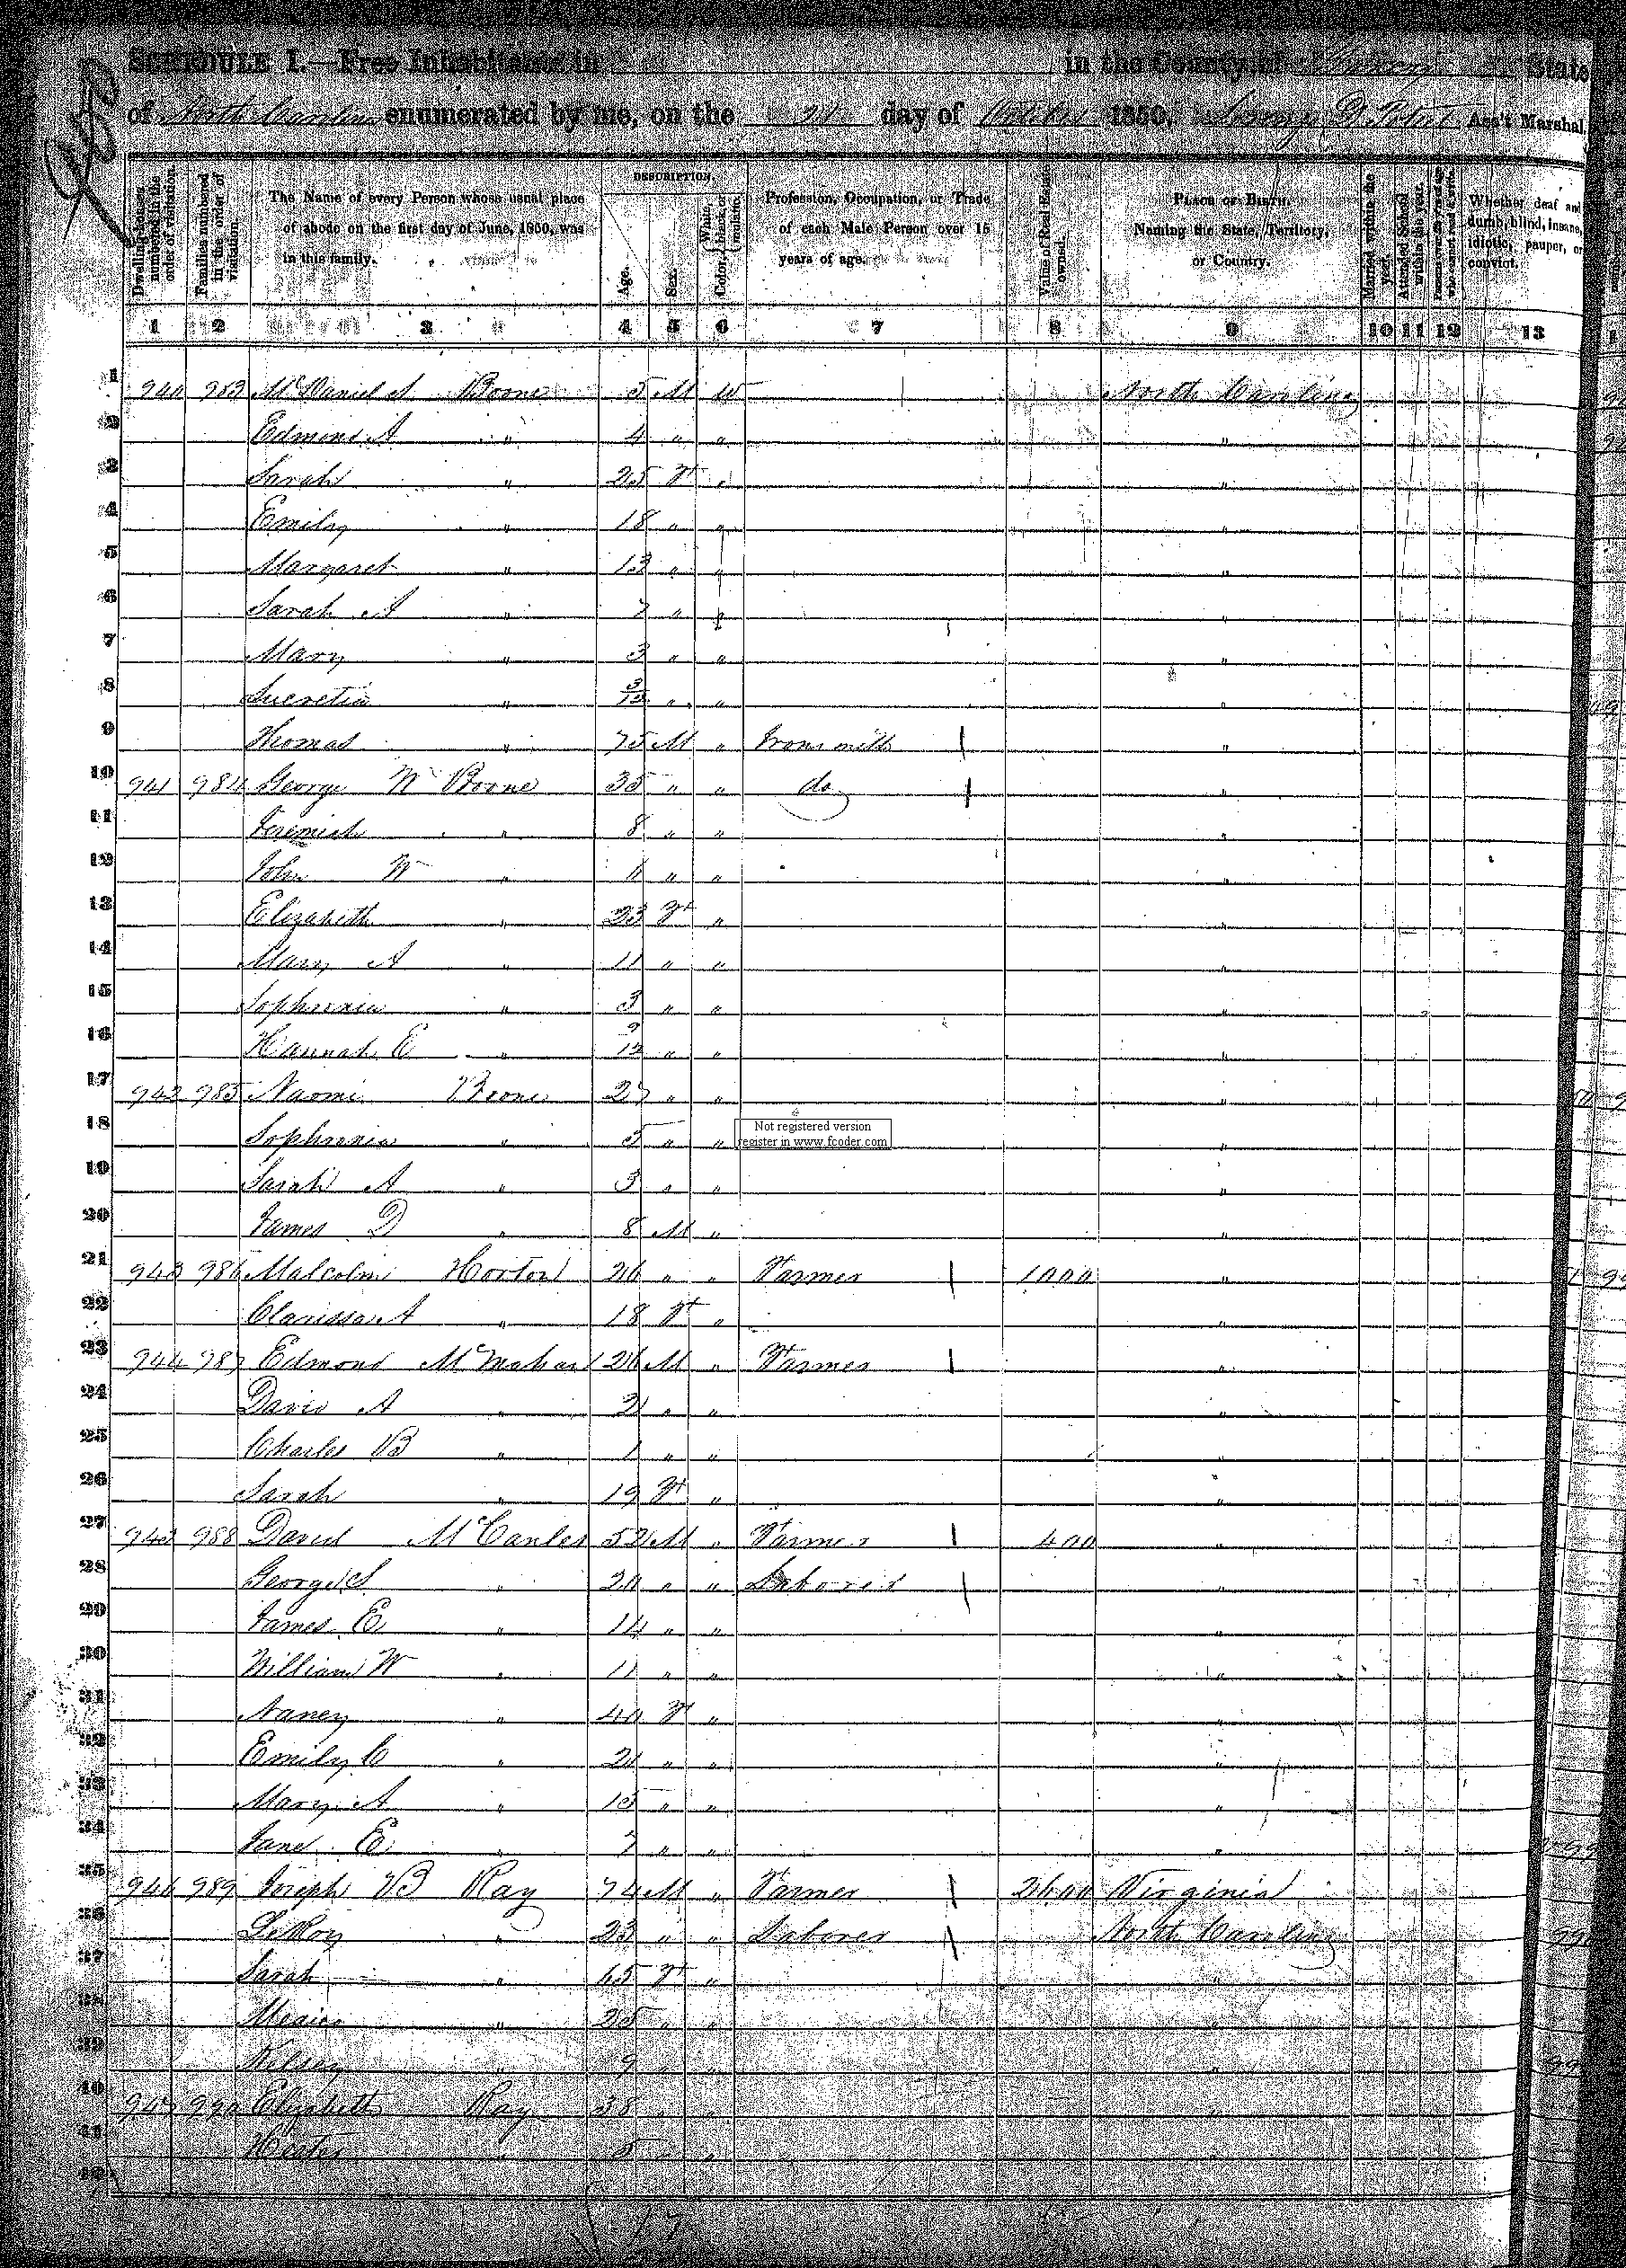 SCHEDULE I.—Free Inhabitants in in the County of Yancey State
of North Carolina enumerated by me, on the 24 day of October 1850. Ass't Marshal.
Dwelling-houses numbered in the order of visitation.
Families numbered in the order of visitation.
The Name of every Person whose usual place of abode on the first day of June, 1850, was in this family.
DESCRIPTION.
Age.
Sex.
Color, White, black, or mulatto.
Profession, Occupation, or Trade of each Male Person over 15 years of age.
Value of Real Estate owned.
PLACE OF BIRTH. Naming the State, Territory, or Country.
Married within the year.
Attended School within the year.
Persons over 20 y'rs of age who cannot read & write.
Whether deaf and dumb, blind, insane, idiotic, pauper, or convict.
1 2 3 4 5 6 7 8 9 10 11 12 13
1 940 983 McDaniel S Boone 5 M W North Carolina
2 Edmond A " 4 " " "
3 Sarah " 25 F " "
4 Emily " 18 " " "
5 Margaret " 13 " " "
6 Sarah A " 7 " " "
7 Mary " 3 " " "
8 Lucretia " 3/12 " " "
9 Thomas " 75 M " "
10 941 984 George W Boone 35 " " do "
11 Jeremiah " 8 " " "
12 John W " " " "
13 Elizabeth " 23 F " "
14 Mary A " 11 " " "
15 Sophronia " 3 " " "
16 Hannah E " " " "
17 942 985 Naomi Boone 27 " " "
18 Sophronia " 5 " " "
19 Sarah A " 3 " " "
20 James D " 8 M " "
21 943 986 Malcolm Horton 26 " " Farmer 1000 "
22 Clarissa A " 18 F " "
23 944 987 Edmond McMahan 26 M " Farmer "
24 David A " 2 " " "
25 Charles B " 1 " " "
26 Sarah " 19 F " "
27 988 David McCanles 52 M " Farmer 400 "
28 George S " 20 " " Laborer "
29 James E " 14 " " "
30 William W " 11 " " "
31 Nancy " 40 F " "
32 Emily C " 21 " " "
33 Mary A " 15 " " "
34 Jane E " 7 " " "
35 946 989 Joseph B Ray 74 M " Farmer 2600 Virginia
36 LeRoy " 23 " " Laborer North Carolina
37 Sarah " 65 F " "
38 " 25 " " "
39 " 9 " " "
40 947 990 Elizabeth Ray 38 " " "
41 Hester " 5 " " "
42
Not registered version
register in www.fcoder.com